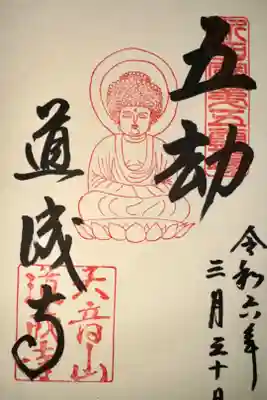 令和六年
三月三十日
五劫
道成寺
天音山
道成寺